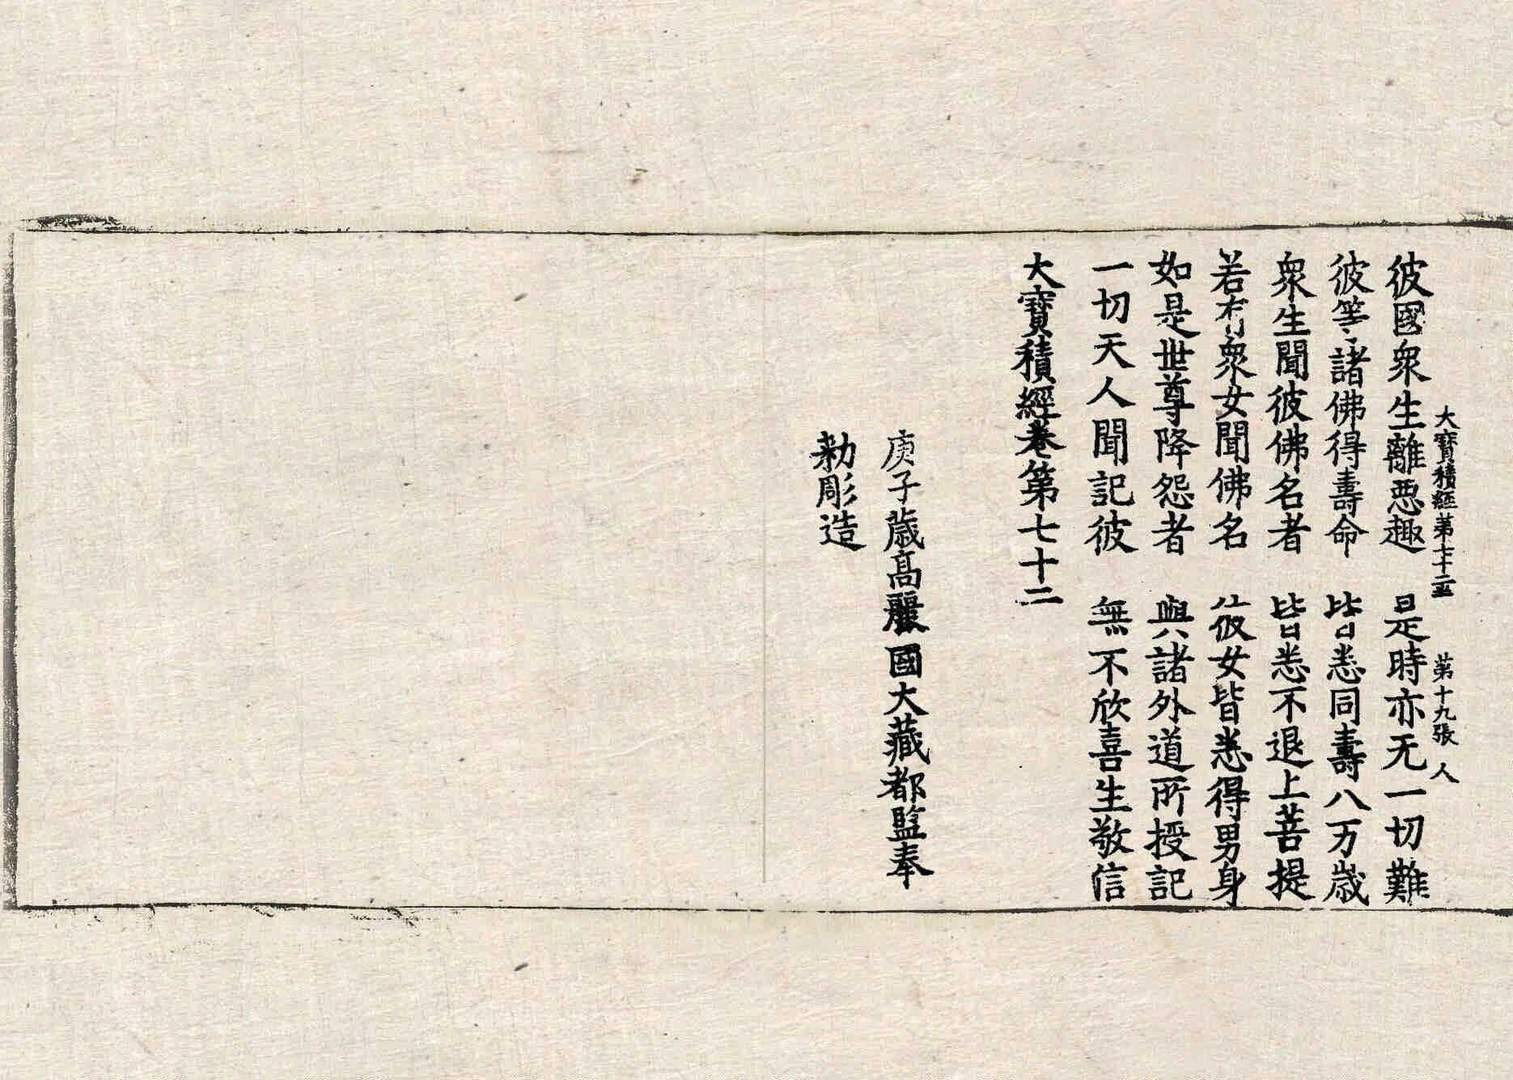 大寶積經第七十二 第十九張 人
彼國衆生離惡趣 是時亦无一切難
彼等諸佛得壽命 皆悉同壽八万歲
衆生聞彼佛名者 皆悉不退上菩提
若有衆女聞佛名 彼女皆悉得男身
如是世尊降怨者 與諸外道所授記
一切天人聞記彼 無不欣喜生敬信
大寶積經卷第七十二
庚子歲高麗國大藏都監奉
勑彫造